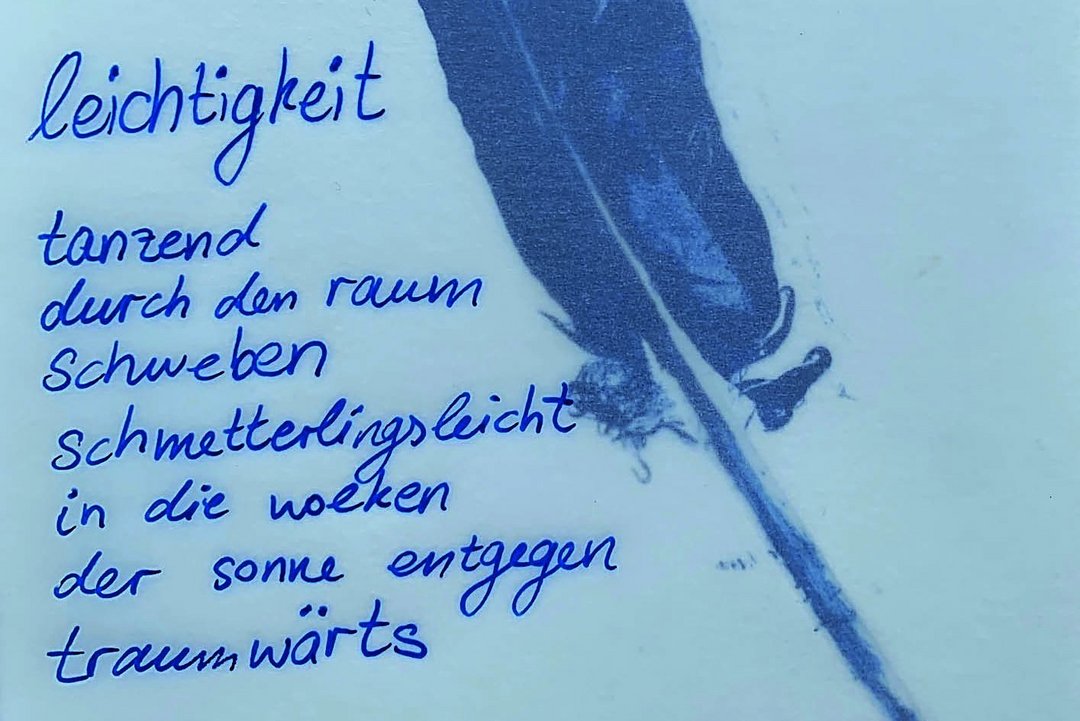 leichtigkeit
tanzend
durch den raum
schweben
schmetterlingsleicht
in die wolken
der sonne entgegen
traumwärts